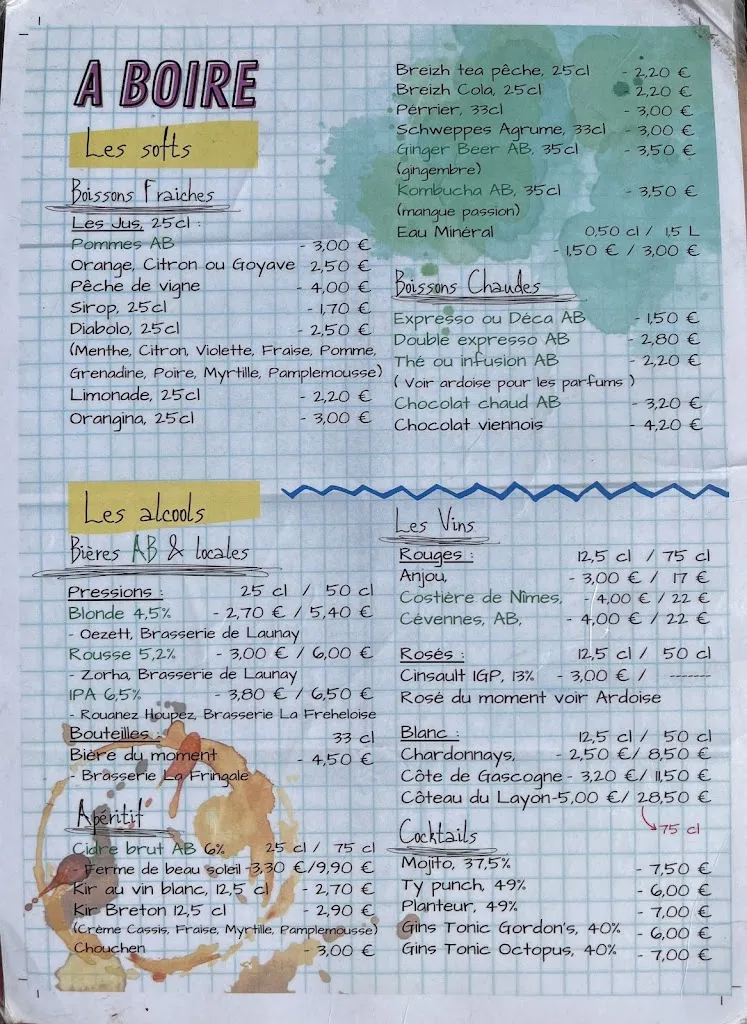 A BOIRE
Les softs
Boissons Fraiches
Les Jus, 25cl :
Pommes AB - 3,00 €
Orange, Citron ou Goyave 2,50 €
Pêche de vigne - 4,00 €
Sirop, 25cl - 1,70 €
Diabolo, 25cl - 2,50 €
(Menthe, Citron, Violette, Fraise, Pomme,
Grenadine, Poire, Myrtille, Pamplemousse)
Limonade, 25cl - 2,20 €
Orangina, 25cl - 3,00 €
Breizh tea pêche, 25cl - 2,20 €
Breizh Cola, 25cl - 2,20 €
Pérrier, 33cl - 3,00 €
Schweppes Agrume, 33cl - 3,00 €
Ginger Beer AB, 35cl - 3,50 €
(gingembre)
Kombucha AB, 35cl - 3,50 €
(mangue passion)
Eau Minéral 0,50 cl / 1,5 L
- 1,50 € / 3,00 €
Boissons Chaudes
Expresso ou Déca AB - 1,50 €
Double expresso AB - 2,80 €
Thé ou infusion AB - 2,20 €
( Voir ardoise pour les parfums )
Chocolat chaud AB - 3,20 €
Chocolat viennois - 4,20 €
Les alcools
Bières AB & locales
Pressions : 25 cl / 50 cl
Blonde 4,5% - 2,70 € / 5,40 €
- Oezett, Brasserie de Launay
Rousse 5,2% - 3,00 € / 6,00 €
- Zorha, Brasserie de Launay
IPA 6,5% - 3,80 € / 6,50 €
- Rouanez Houpez, Brasserie La Freheloise
Bouteilles : 33 cl
Bière du moment - 4,50 €
- Brasserie La Fringale
Apéritif
Cidre brut AB 6% 25 cl / 75 cl
- Ferme de beau soleil -3,30 €/9,90 €
Kir au vin blanc, 12,5 cl - 2,70 €
Kir Breton 12,5 cl - 2,90 €
(Crème Cassis, Fraise, Myrtille, Pamplemousse)
Chouchen - 3,00 €
Les Vins
Rouges : 12,5 cl / 75 cl
Anjou, - 3,00 € / 17 €
Costière de Nîmes, - 4,00 € / 22 €
Cévennes, AB, - 4,00 € / 22 €
Rosés : 12,5 cl / 50 cl
Cinsault IGP, 13% - 3,00 € / -------
Rosé du moment voir Ardoise
Blanc : 12,5 cl / 50 cl
Chardonnays, - 2,50 €/ 8,50 €
Côte de Gascogne - 3,20 €/ 11,50 €
Côteau du Layon-5,00 €/ 28,50 €
75 cl
Cocktails
Mojito, 37,5% - 7,50 €
Ty punch, 49% - 6,00 €
Planteur, 49% - 7,00 €
Gins Tonic Gordon's, 40% - 6,00 €
Gins Tonic Octopus, 40% - 7,00 €